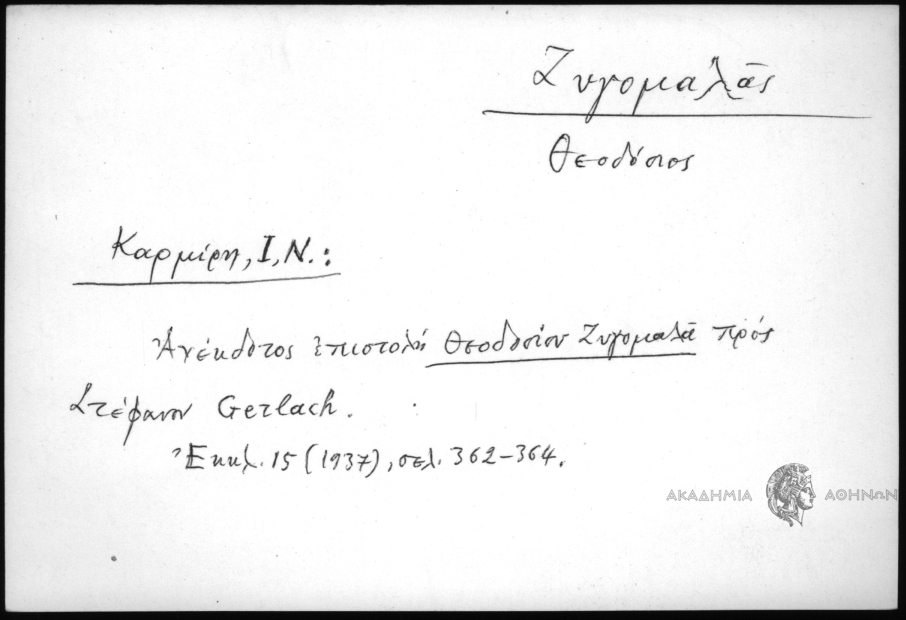 Ζυγομαλᾶς
Θεοδόσιος
Καρμίρη, Ι, Ν.:
Ἀνέκδοτος ἐπιστολή Θεοδοσίου Ζυγομαλᾶ πρός
Στέφανον Gerlach.
Ἐκκλ. 15 (1937), σελ. 362-364.
ΑΚΑΔΗΜΙΑ ΑΘΗΝΩΝ